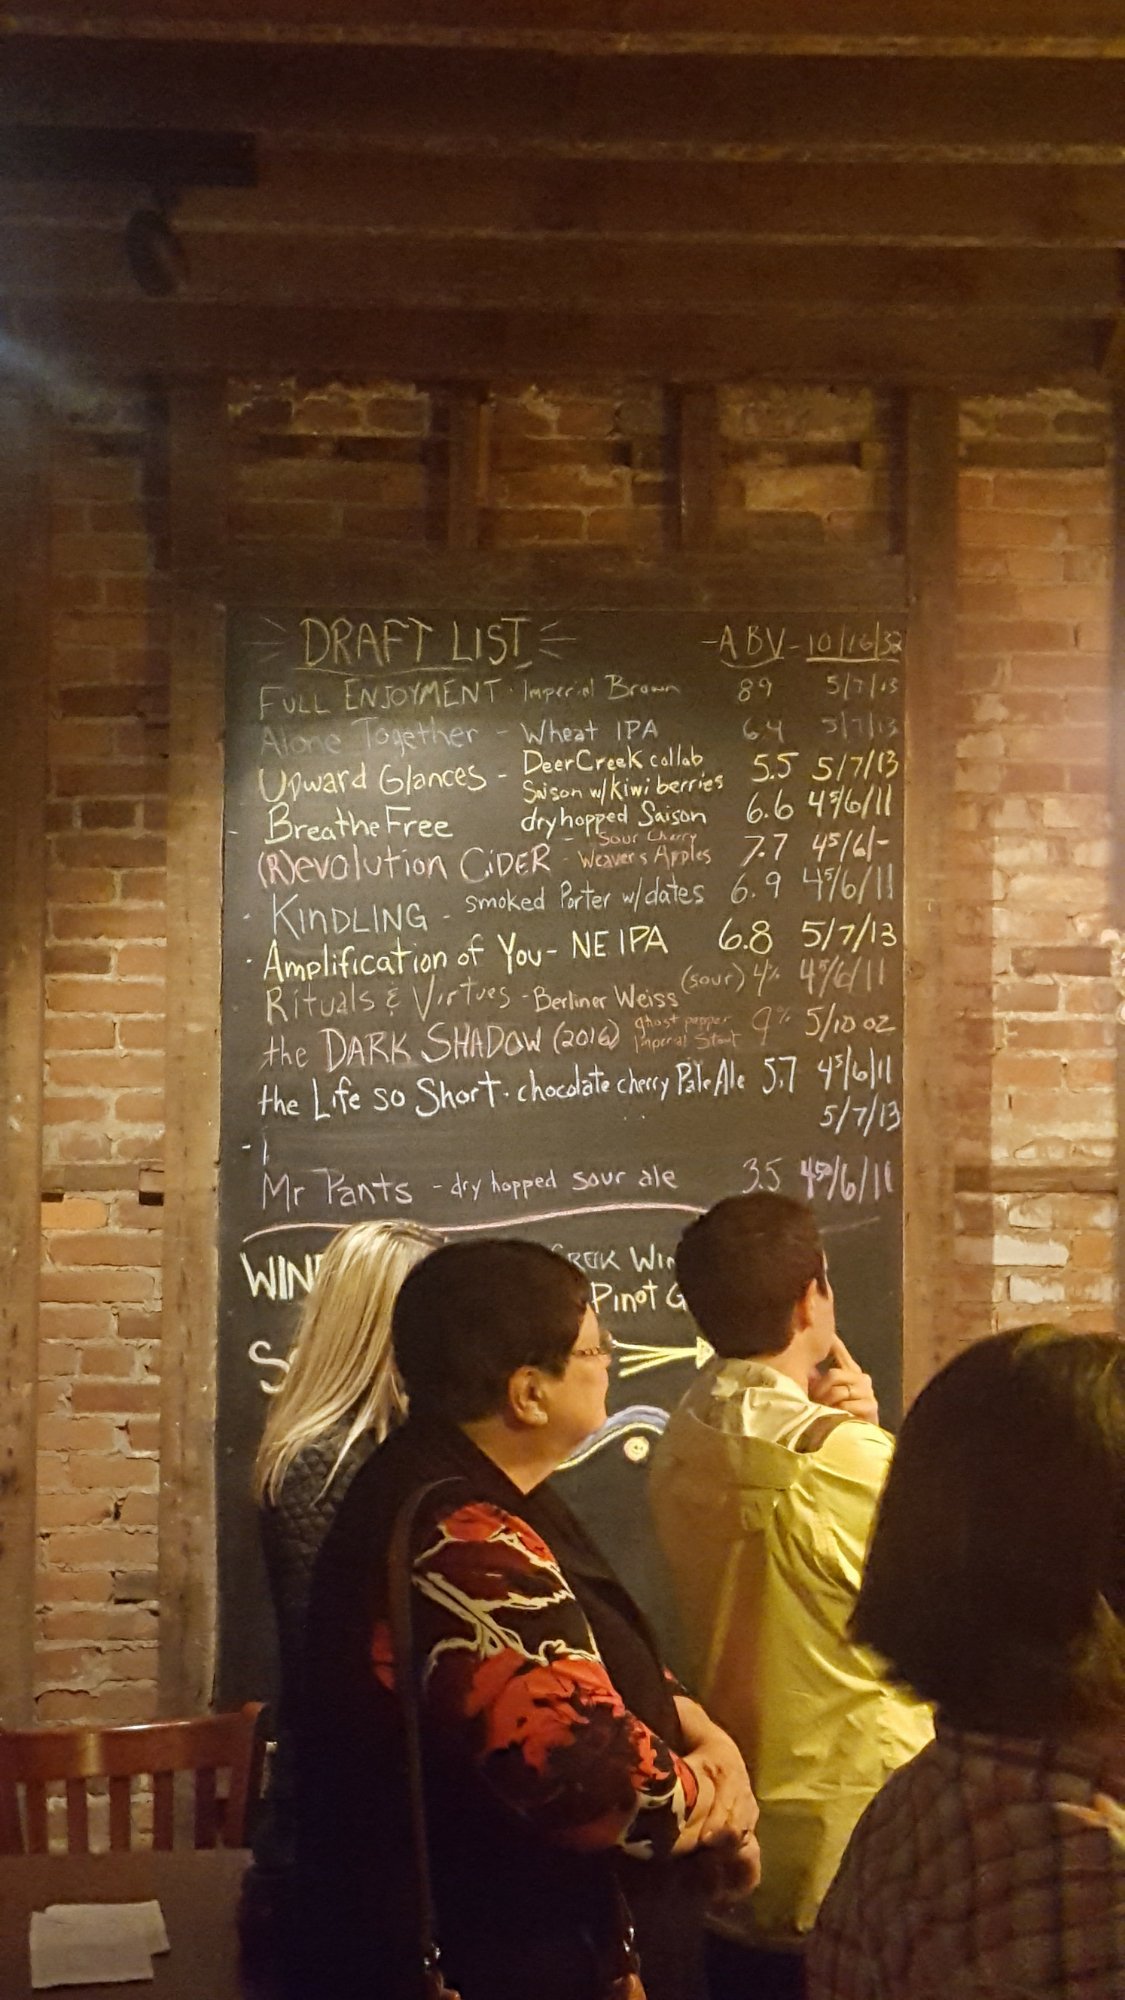 DRAFT LIST -ABV- 10/16/32
FULL ENJOYMENT · Imperial Brown 89 5/7/13
Alone Together - Wheat IPA 64 5/7/13
Upward Glances - DeerCreek collab 5.5 5/7/13
Saison w/kiwi berries
Breathe Free dryhopped Saison 6.6 4⁵/6/11
(R)evolution CiDER - Sour Cherry 7.7 4⁵/6/-
Weavers Apples
- KINDLING - smoked Porter w/dates 6.9 4⁵/6/11
- Amplification of You - NE IPA 6.8 5/7/13
Rituals & Virtues - Berliner Weiss (sour) 4% 4⁵/6/11
the DARK SHADOW (2016) ghost pepper 9% 5/10 oz
Imperial Stout
the Life so Short · chocolate cherry Pale Ale 5.7 4⁵/6/11
5/7/13
Mr Pants - dry hopped sour ale 3.5 4⁵⁰/6/11